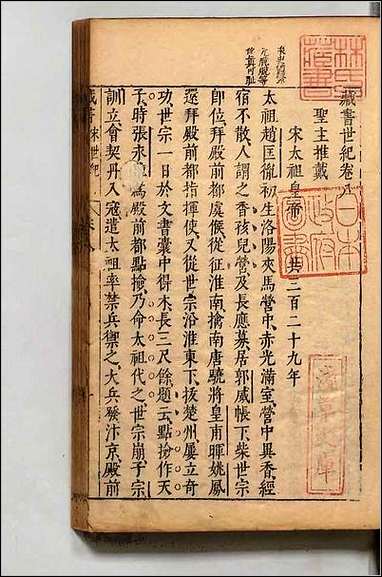 藏書世紀卷八
聖主推戴
宋太祖皇帝 共三百二十九年
太祖趙匡胤初生洛陽夾馬營中赤光滿室營中異香經
宿不散人謂之香孩兒營及長應募居郭威帳下柴世宗
即位拜殿前都虞候從征淮南擒南唐驍將皇甫暉姚鳳
還拜殿前都指揮使又從世宗沿淮東下拔楚州屢立奇
功世宗一日於文書囊中得木長三尺餘題云點撿作天
子時張永德爲殿前都點撿乃命太祖代之世宗崩子宗
訓立會契丹入寇遣太祖率禁兵禦之大兵發汴京殿前
藏書 宋世紀 卷八 一
林氏藏書
日本政府圖書
淺草文庫